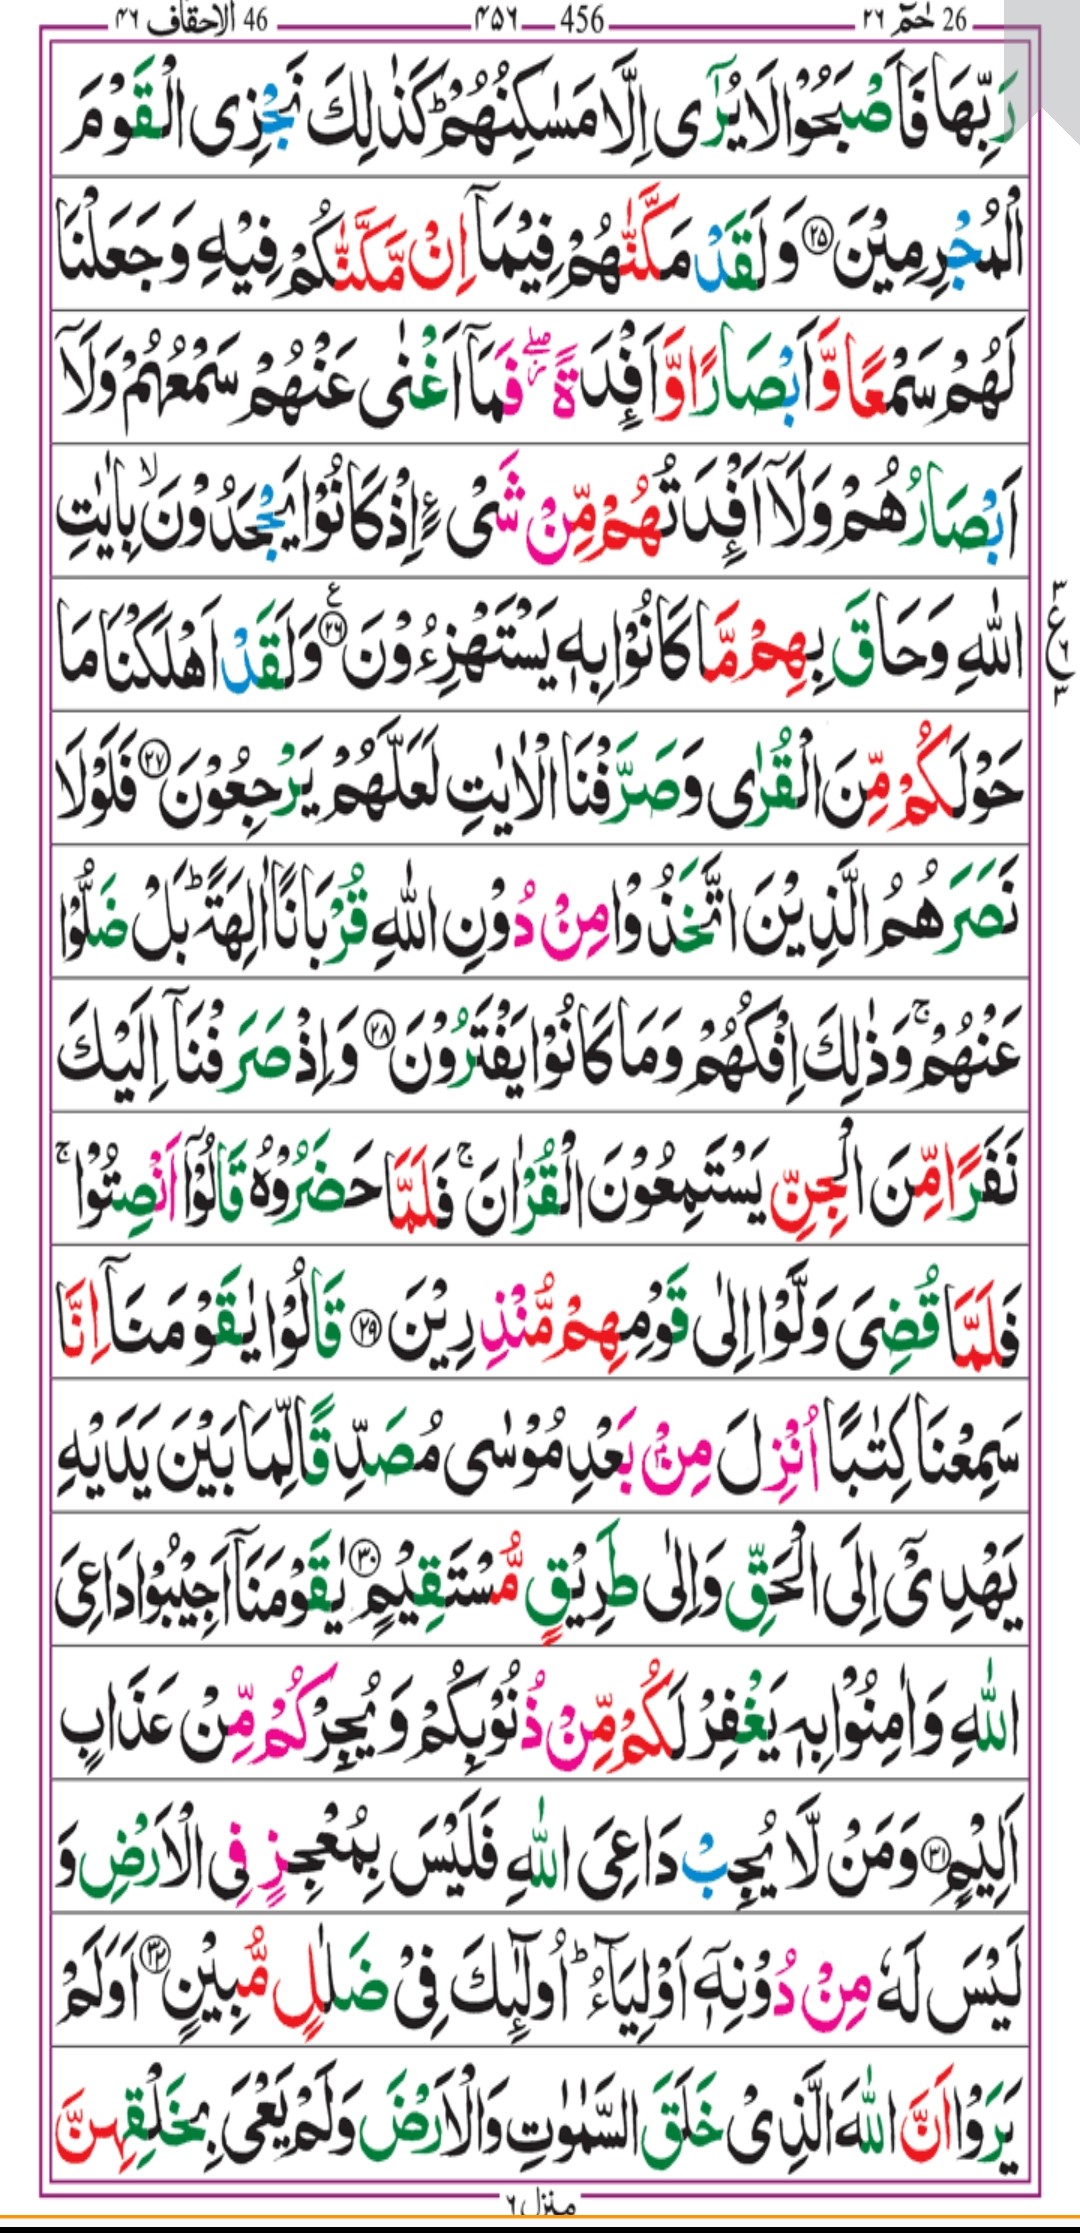 26 حٰمٓ ٢٦ 456 ٤٥٦ 46 الاحقاف ٤٦
رَبِّهَا فَاَصْبَحُوْا لَا يُرٰٓى اِلَّا مَسٰكِنُهُمْؕ كَذٰلِكَ نَجْزِى الْقَوْمَ
الْمُجْرِمِيْنَ ﴿۲۵﴾ وَلَقَدْ مَكَّنّٰهُمْ فِيْمَاۤ اِنْ مَّكَّنّٰكُمْ فِيْهِ وَجَعَلْنَا
لَهُمْ سَمْعًا وَّاَبْصَارًا وَّاَفْئِدَةً ۖ فَمَاۤ اَغْنٰى عَنْهُمْ سَمْعُهُمْ وَلَاۤ
اَبْصَارُهُمْ وَلَاۤ اَفْئِدَتُهُمْ مِّنْ شَىْءٍ اِذْ كَانُوْا يَجْحَدُوْنَۙ بِاٰيٰتِ
اللّٰهِ وَحَاقَ بِهِمْ مَّا كَانُوْا بِهٖ يَسْتَهْزِءُوْنَ ﴿۲۶﴾ ع وَلَقَدْ اَهْلَكْنَا مَا
٣ ع ٦ ٣
حَوْلَكُمْ مِّنَ الْقُرٰى وَصَرَّفْنَا الْاٰيٰتِ لَعَلَّهُمْ يَرْجِعُوْنَ ﴿۲۷﴾ فَلَوْلَا
نَصَرَهُمُ الَّذِيْنَ اتَّخَذُوْا مِنْ دُوْنِ اللّٰهِ قُرْبَانًا اٰلِهَةًؕ بَلْ ضَلُّوْا
عَنْهُمْۚ وَذٰلِكَ اِفْكُهُمْ وَمَا كَانُوْا يَفْتَرُوْنَ ﴿۲۸﴾ وَاِذْ صَرَفْنَاۤ اِلَيْكَ
نَفَرًا مِّنَ الْجِنِّ يَسْتَمِعُوْنَ الْقُرْاٰنَۚ فَلَمَّا حَضَرُوْهُ قَالُوْۤا اَنْصِتُوْاۚ
فَلَمَّا قُضِىَ وَلَّوْا اِلٰى قَوْمِهِمْ مُّنْذِرِيْنَ ﴿۲۹﴾ قَالُوْا يٰقَوْمَنَاۤ اِنَّا
سَمِعْنَا كِتٰبًا اُنْزِلَ مِنْۢ بَعْدِ مُوْسٰى مُصَدِّقًا لِّمَا بَيْنَ يَدَيْهِ
يَهْدِىْۤ اِلَى الْحَقِّ وَاِلٰى طَرِيْقٍ مُّسْتَقِيْمٍ ﴿۳۰﴾ يٰقَوْمَنَاۤ اَجِيْبُوْا دَاعِىَ
اللّٰهِ وَاٰمِنُوْا بِهٖ يَغْفِرْ لَكُمْ مِّنْ ذُنُوْبِكُمْ وَيُجِرْكُمْ مِّنْ عَذَابٍ
اَلِيْمٍ ﴿۳۱﴾ وَمَنْ لَّا يُجِبْ دَاعِىَ اللّٰهِ فَلَيْسَ بِمُعْجِزٍ فِى الْاَرْضِ وَ
لَيْسَ لَهٗ مِنْ دُوْنِهٖۤ اَوْلِيَآءُؕ اُولٰٓئِكَ فِىْ ضَلٰلٍ مُّبِيْنٍ ﴿۳۲﴾ اَوَلَمْ
يَرَوْا اَنَّ اللّٰهَ الَّذِىْ خَلَقَ السَّمٰوٰتِ وَالْاَرْضَ وَلَمْ يَعْىَ بِخَلْقِهِنَّ
منزل ٦